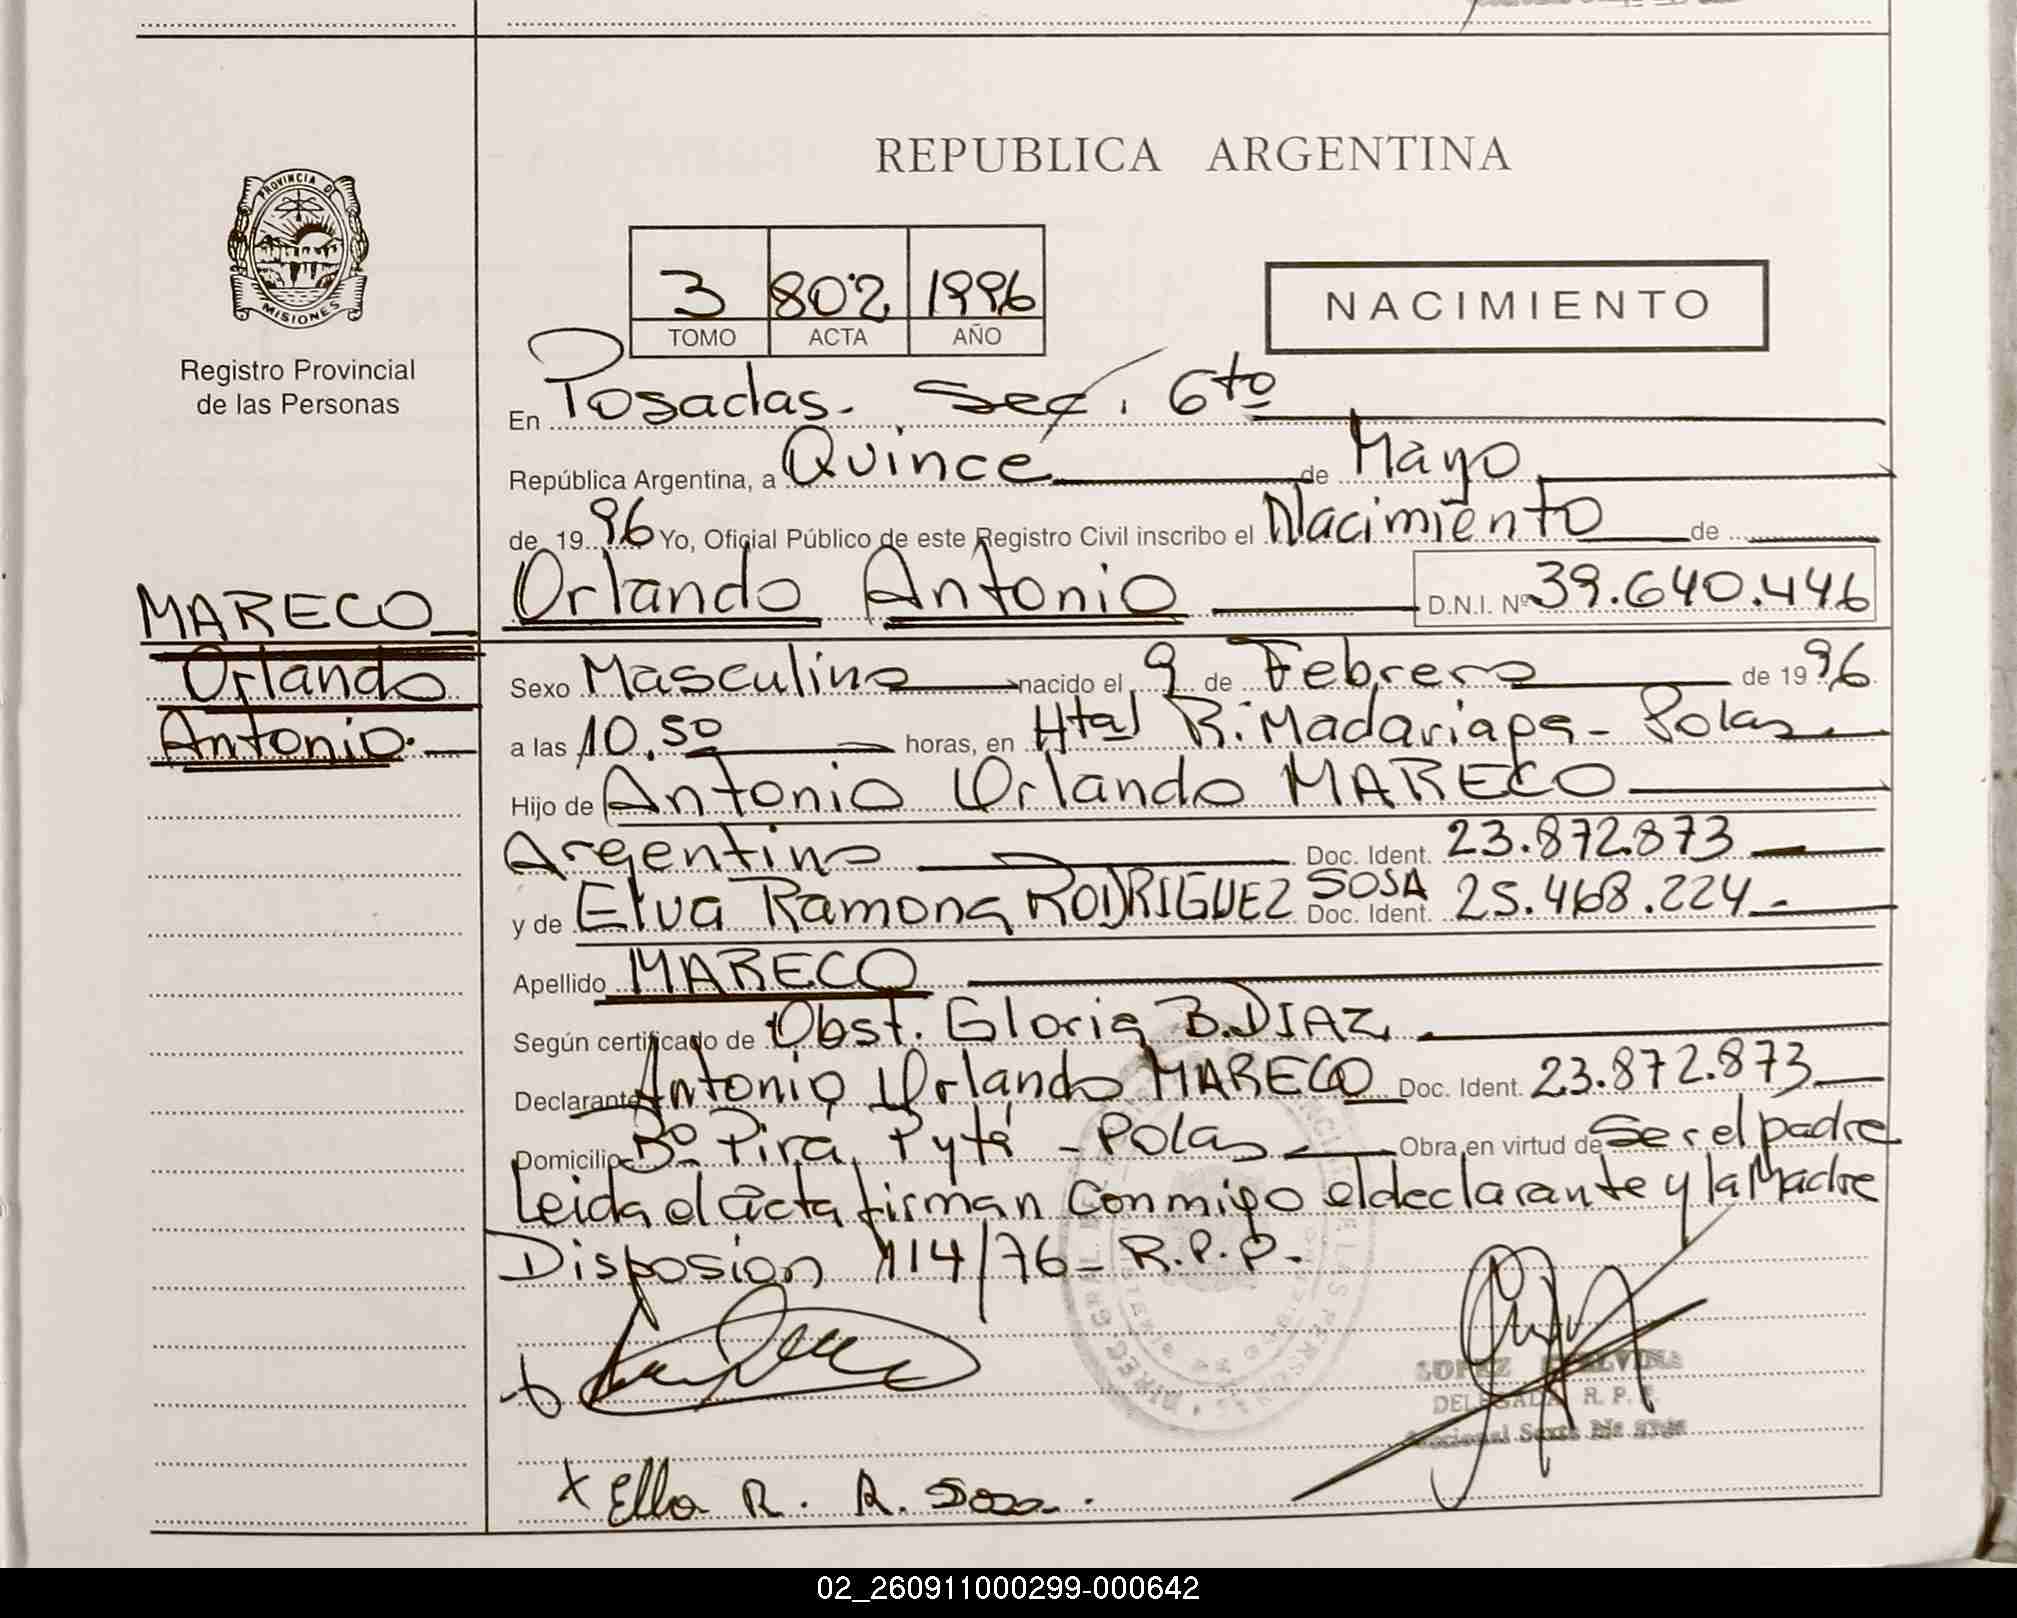 REPUBLICA ARGENTINA
PROVINCIA DE
MISIONES
Registro Provincial
de las Personas
3 802 1996
TOMO ACTA AÑO
NACIMIENTO
En Posadas. Sec. 6to
República Argentina, a Quince de Mayo
de 19 96 Yo, Oficial Público de este Registro Civil inscribo el Nacimiento de
Orlando Antonio D.N.I. Nº 39.640.446
MARECO
Orlando
Antonio.
Sexo Masculino nacido el 9 de Febrero de 19 96.
a las 10.50 horas, en Htal R. Madariaga - Pdas.
Hijo de Antonio Orlando MARECO
Argentino Doc. Ident. 23.872.873
y de Elva Ramona RODRIGUEZ SOSA Doc. Ident. 25.468.224
Apellido MARECO
Según certificado de Obst. Gloria B. DIAZ
Declarante Antonio Orlando MARECO Doc. Ident. 23.872.873
Domicilio Bº Pirá Pytá - Pdas Obra en virtud de Ser el padre
Leida el acta firman conmigo el declarante y la Madre
Disposion 114/76 - R.P.P.
DELEGADA R. P. P.
x Elba R. R. Sosa.
02_260911000299-000642